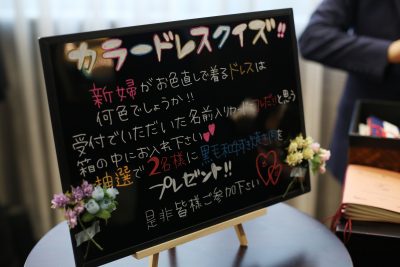 カラードレスクイズ!!
新婦がお色直しで着るドレスは
何色でしょうか!!
受付でいただいた名前入りカードをコレだ!!と思う
箱の中にお入れ下さい
抽選で2名様に黒毛和牛すき焼き肉を
プレゼント!!
是非皆様ご参加下さい